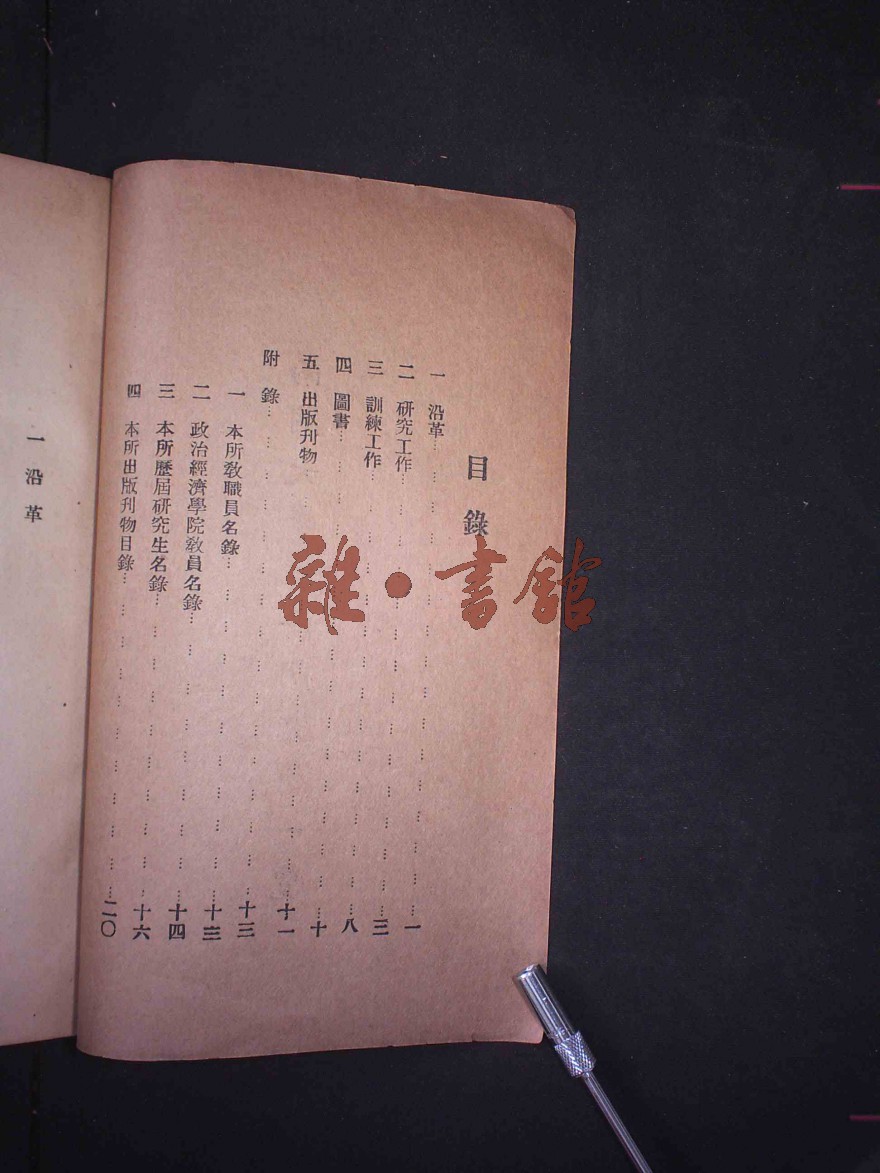 目錄
一 沿革……一
二 研究工作……三
三 訓練工作……八
四 圖書……十
五 出版刊物……十一
附 錄……十三
一 本所敎職員名錄……十三
二 政治經濟學院敎員名錄……十四
三 本所歷屆研究生名錄……十六
四 本所出版刊物目錄……二〇
一 沿革
雜·書館